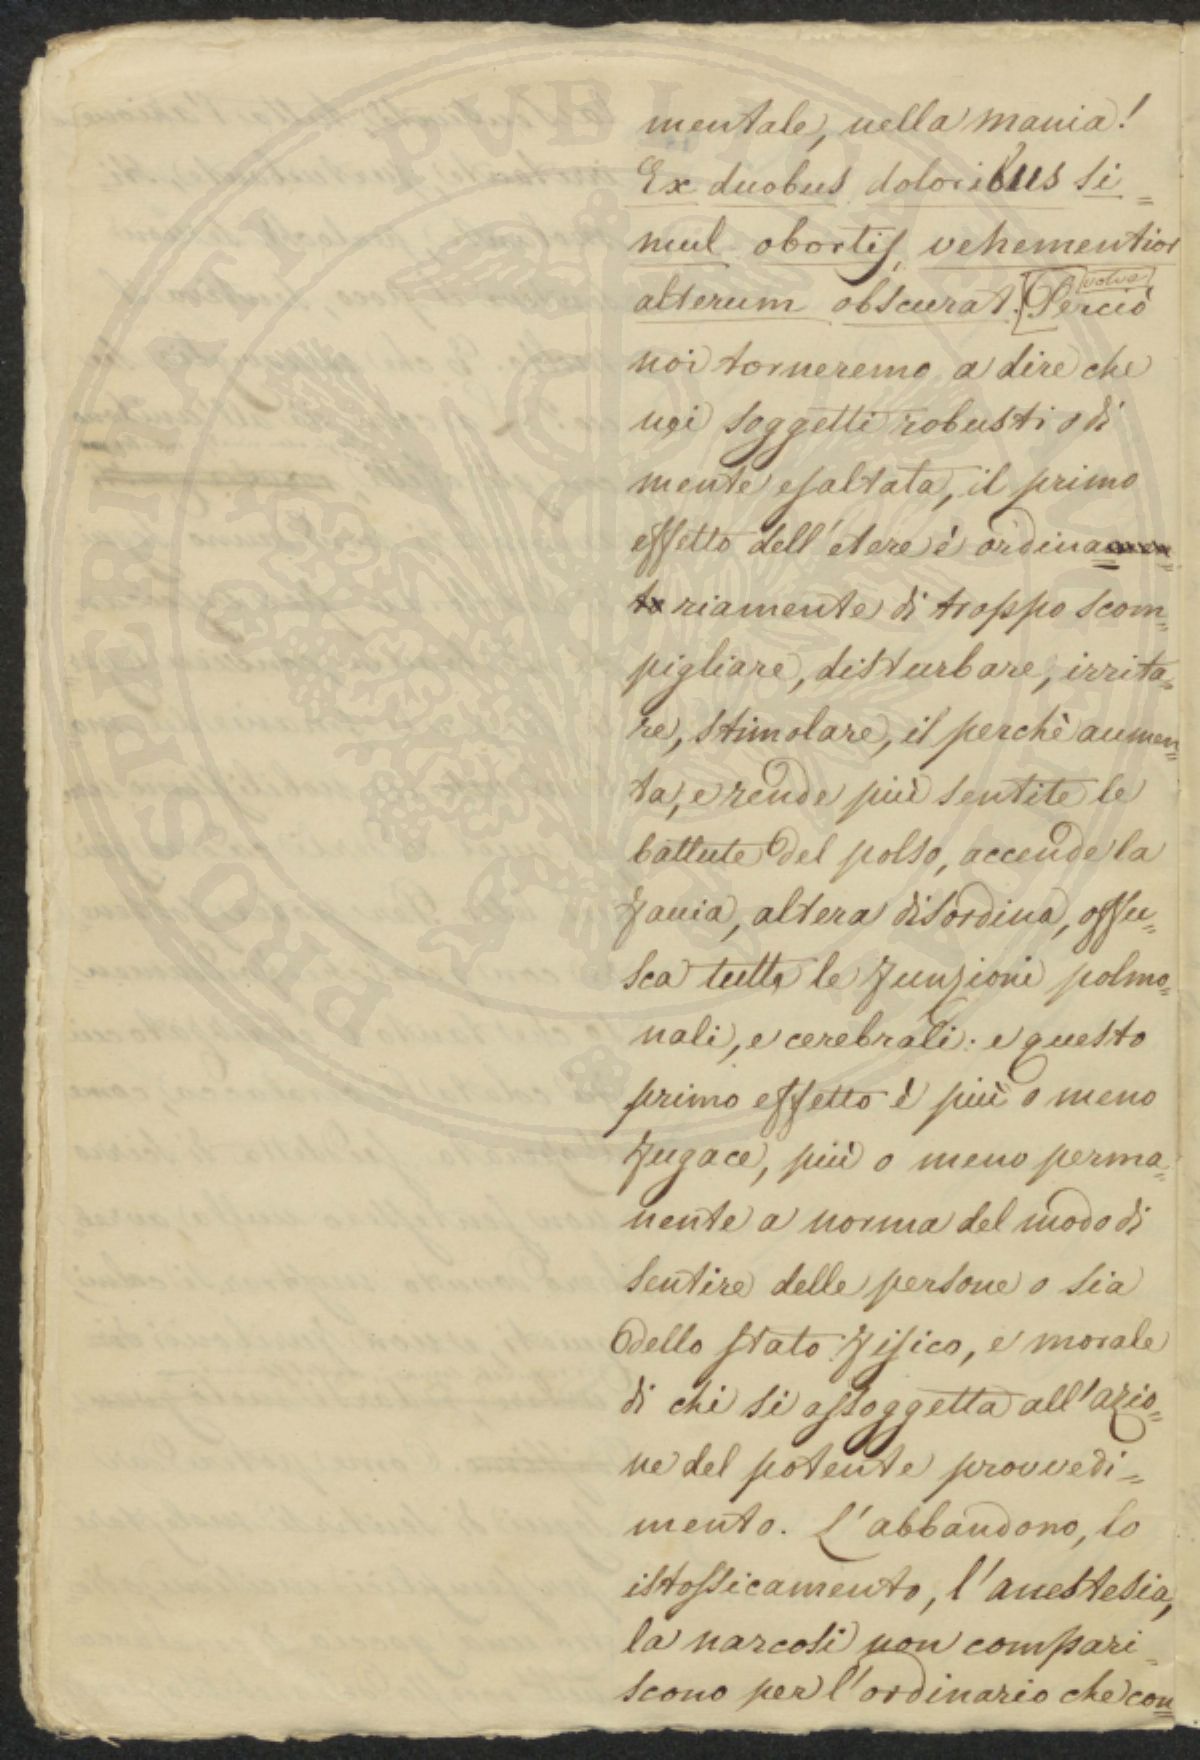 mentale, nella mania!
Ex duobus doloribus si=
mul obortis, vehementior
alterum obscurat. [Perciò
volve
noi torneremo a dire che
nei soggetti robusti o di
mente esaltata, il primo
effetto dell'etere è ordina
riamente di troppo scom=
pigliare, disturbare, irrita=
re, stimolare, il perchè aumen=
ta, e rende più sentite le
battute del polso, accende la
facia, altera disordina, offu=
sca tutte le funzioni polmo=
nali, e cerebrali: e questo
primo effetto è più o meno
fugace, più o meno perma=
nente a norma del modo di
sentire delle persone o sia
dello stato fisico, e morale
di chi si assoggetta all'azio=
ne del potente provvedi=
mento. L'abbandono, lo
istossicamento, l'anestesia,
la narcosi non compari=
scono per l'ordinario che con=
PROSPERI PUBLICA